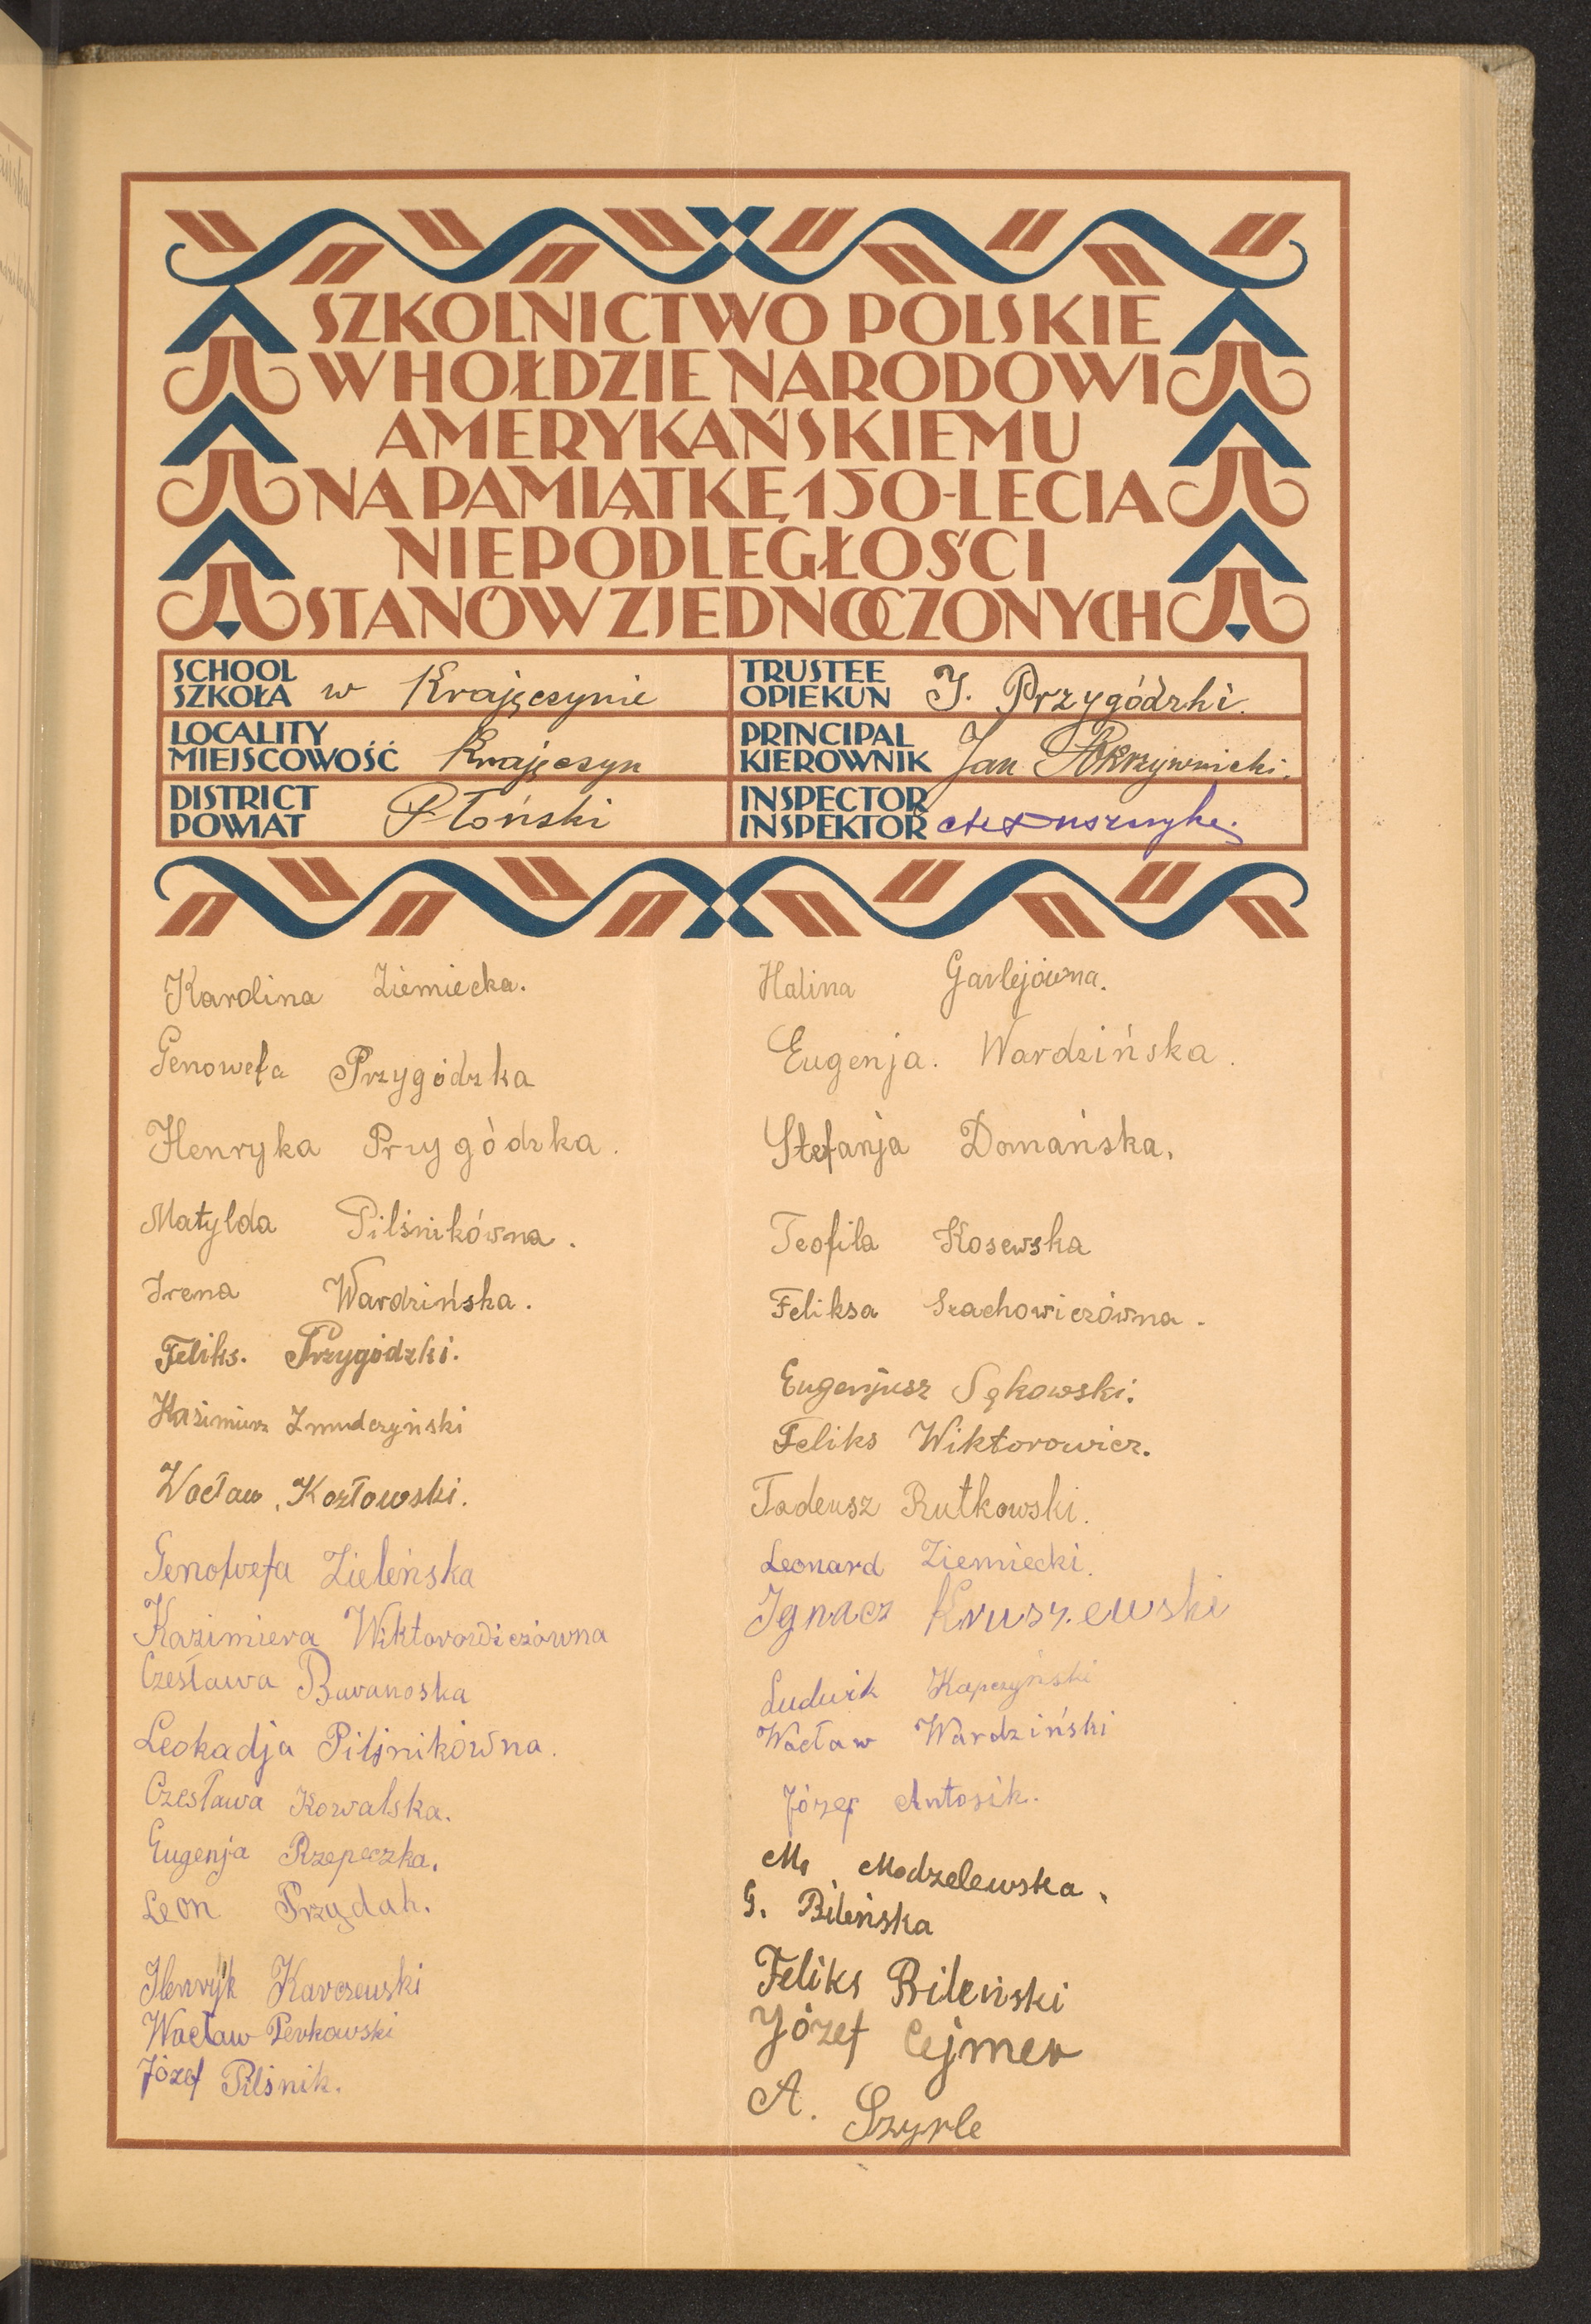 SZKOLNICTWO POLSKIE
W HOŁDZIE NARODOWI
AMERYKAŃSKIEMU
NA PAMIĄTKĘ 150-LECIA
NIEPODLEGŁOŚCI
STANÓW ZJEDNOCZONYCH
SCHOOL
SZKOŁA w Krajęczynie
TRUSTEE
OPIEKUN J. Przygódzki.
LOCALITY
MIEJSCOWOŚĆ Krajęczyn
PRINCIPAL
KIEROWNIK Jan
DISTRICT
POWIAT Płoński
INSPECTOR
INSPEKTOR
Karolina Ziemiecka.
Genowefa Przygódzka
Henryka Przygódzka.
Matylda Pilśnikówna.
Irena Wardzińska.
Feliks. Przygódzki.
Kazimierz Żmudczyński
Wacław, Kozłowski.
Genowefa Zieleńska
Kazimiera Wiktorowiczówna
Czesława Baranoska
Leokadja Pilśnikówna.
Czesława Kowalska.
Eugenja Rzepeczka.
Leon Przydah.
Henryk Karczewski
Wacław Perkowski
Józef Pilśnik.
Halina Garlejówna.
Eugenja. Wardzińska.
Stefanja Domańska.
Teofila Kosewska
Feliksa Szachowiczówna.
Eugenjusz Sękowski.
Feliks Wiktorowicz.
Tadeusz Rutkowski.
Leonard Ziemiecki.
Ignacz Kruszewski
Ludwik Kapczyński
Wacław Wardziński
Józef Antosik.
M. Modzelewska.
G. Bileńska
Feliks Bileński
Józef Cejmer
A. Szyrle